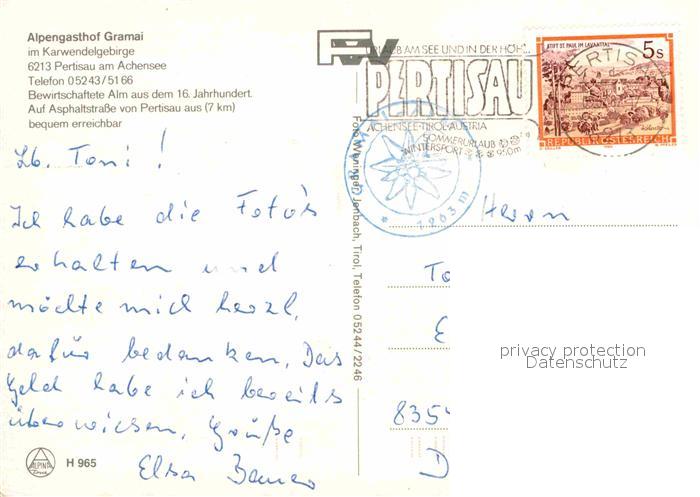 Alpengasthof Gramai
im Karwendelgebirge
6213 Pertisau am Achensee
Telefon 05243/5166
Bewirtschaftete Alm aus dem 16. Jahrhundert.
Auf Asphaltstraße von Pertisau aus (7 km)
bequem erreichbar
Lb. Toni!
Ich habe die Foto's
erhalten und
möchte mich herzl.
dafür bedanken. Das
Geld habe ich bereits
überwiesen. Grüße
Elsa
ALPINA
H 965
Foto Weninger, Jenbach, Tirol, Telefon 05244/2246
URLAUB AM SEE UND IN DER HÖH'...
PERTISAU
ACHENSEE-TIROL-AUSTRIA
SOMMERURLAUB
WINTERSPORT 950m
1263 m
STIFT ST. PAUL IM LAVANTTAL
5s
REPUBLIK ÖSTERREICH
PERTISAU
Herrn
To
E
8354
D
privacy protection
Datenschutz